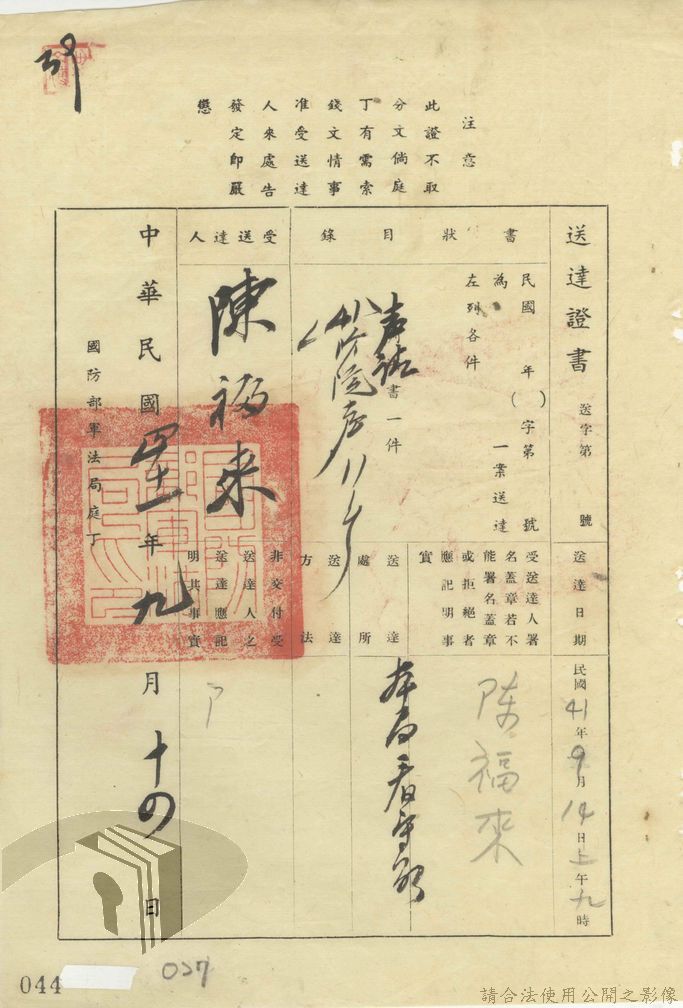 注意
此證不取
分文倘庭
丁有需索
錢文情事
准受送達
人來處告
發定即嚴
懲
送達證書 送字第 號
送達日期
民國41年9月14日上午九時
書狀目錄
民國 年( )字第 號
為 一案送達
左列各件
书一件
受送達人署
名蓋章若不
能署名蓋章
或拒絕者
應記明事
實
陳福來
送達處所
本局看守所
送達方法
受送達人
陳福來
非交付受
送達人之
送達應記
明其事實
中華民國四十一年九月十四日
國防部軍法局庭丁
044
027
請合法使用公開之影像